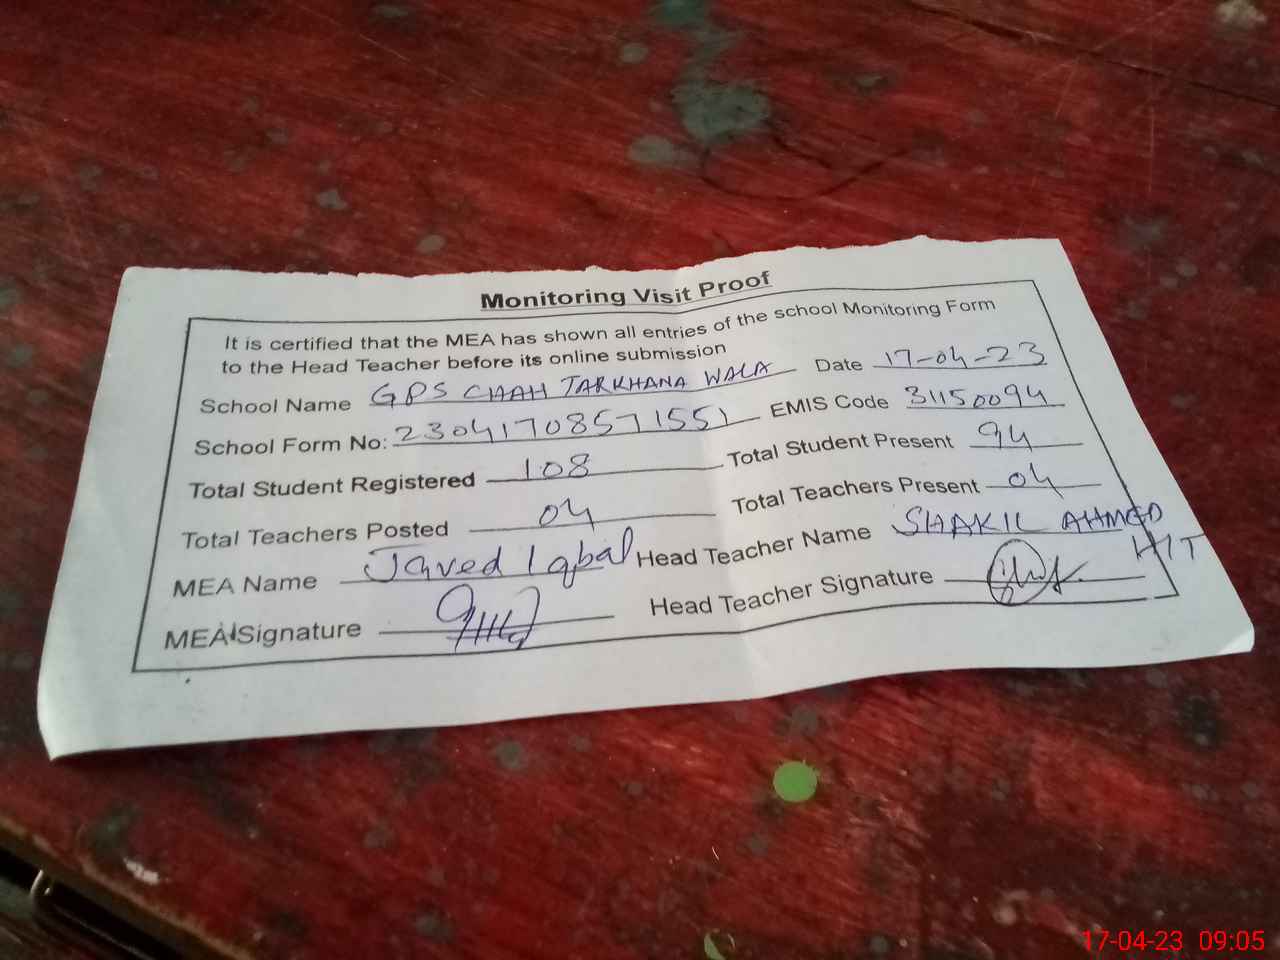 Monitoring Visit Proof
It is certified that the MEA has shown all entries of the school Monitoring Form
to the Head Teacher before its online submission
School Name GPS CHAH TARKHANA WALA Date 17-04-23
School Form No: 23041708571551 EMIS Code 31150094
Total Student Registered 108 Total Student Present 94
Total Teachers Posted 04 Total Teachers Present 04
MEA Name Javed Iqbal Head Teacher Name SHAKIL AHMED
H/T
MEA Signature Head Teacher Signature
17-04-23 09:05